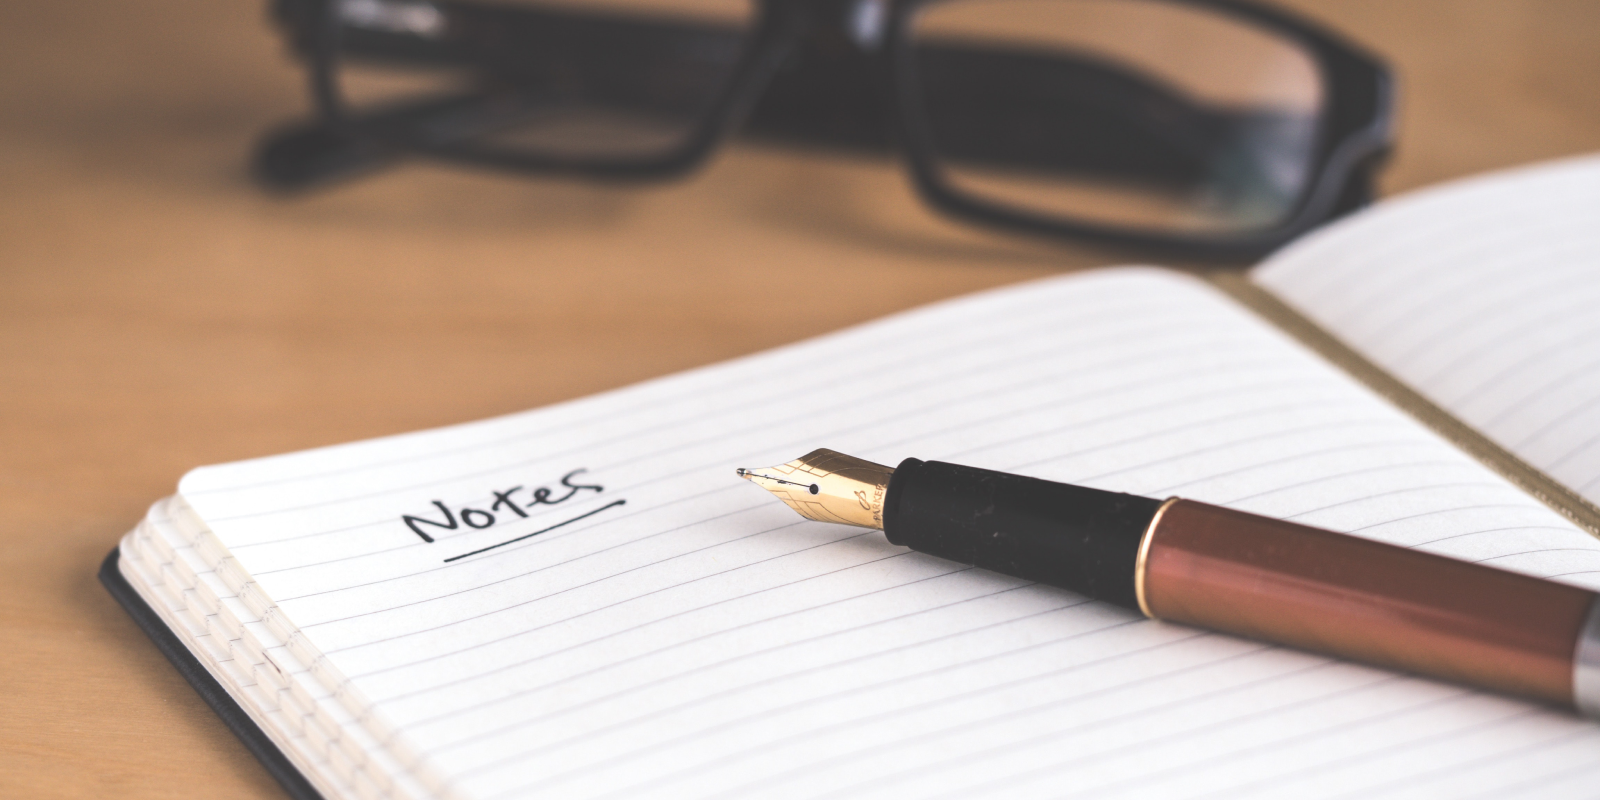 Notes
PARKER